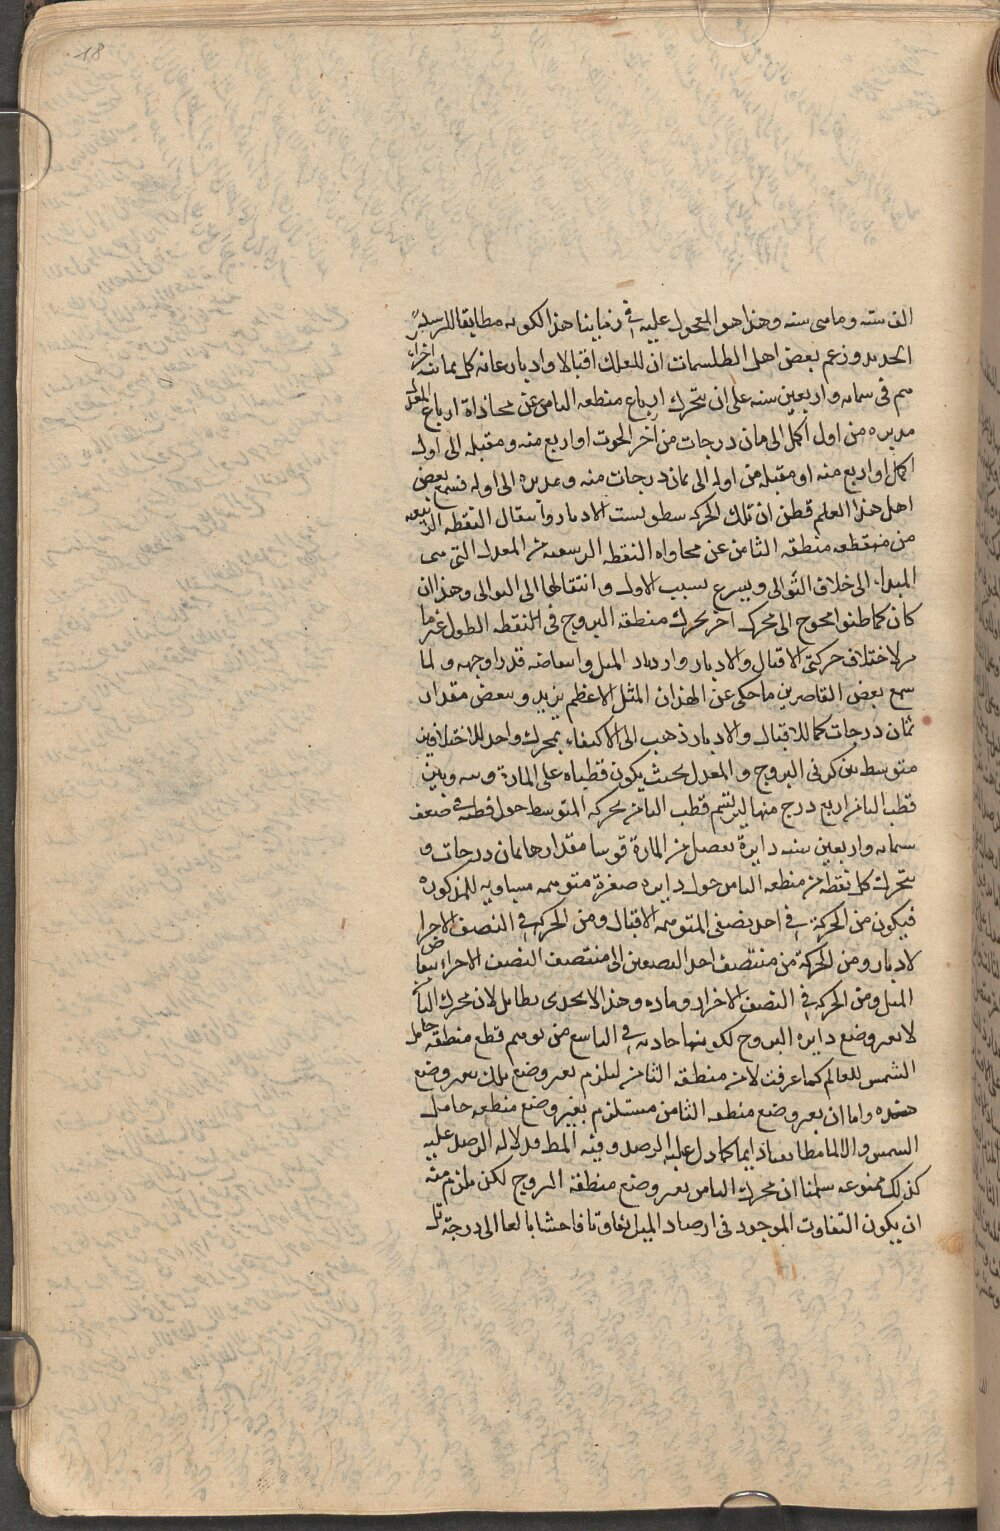 18
الف سنه وماىى سنه وهذا هو المعول عليه فى زماننا هذا لكونه مطابقا للرصد
الجديد وزعم بعض اهل الطلسمات ان للفلك اقبالا وادبارا غايه كل ثمانيه اجزاء
يتم فى ستمايه واربعين سنه على ان يتحرك ارباع منطقه الثامن عن محاذاة ارباع المعدل
مدبره من اول الحمل الى ثمان درجات من آخر الحوت او اربع منه ومقبله الى اول
الحمل او اربع منه او مقبله من اوله الى ثمان درجات منه ومدبره الى اوله فسمع بعض
اهل هذا العلم فظن ان تلك الحركه سطو بسبب الادبار وانتقال النقطه الربيعيه
من منطقه الثامن عن محاذاه النقطه الربيعيه من المعدل التى هى
المبدا الى خلاف التوالى ويسرع بسبب الاول وانتقالها الى التوالى وهذا ان
كان كما ظنوا محوج الى محرك اخر يحرك منطقه البروج فى النقطه الطول غير ما
لاختلاف حركتى الاقبال والادبار وازدياد الميل وانتقاصه قدر اوجهه ولما
سمع بعض القاصرين ما حكى عن الهند ان الميل الاعظم يزيد وينقص مقدار
ثمان درجات كما للاقبال والادبار ذهب الى الاكتفاء بمحرك واحد للاختلافين
متوسط بين كرتى البروج والمعدل بحيث يكون قطباه على المارة وبينه وبين
قطب الثامن اربع درج منها ليرتسم قطب الثامن بحركه المتوسط حول قطبه فى ضعف
ستمايه واربعين سنه دايرة تفصل من المارة قوسا مقدارها ثمان درجات و
يتحرك كل نقطه من منطقه الثامن حول دايره صغيرة متوهمه مساويه للمذكوره
فيكون من الحركة فى احد نصفى المتوهمه الاقبال ومن الحركه فى النصف الاخر ا
لادبار ومن الحركة من منتصف احد النصفين الى منتصف النصف الاخر انتقاص
الميل ومن الحركه فى النصف الاخر ازدياده وهذا لا يجدى بطائل لان محرك الثامن
لا يغير وضع دايره البروج لكونها حادثه فى التاسع من توهم قطع منطقه حامل
الشمس للعالم كما عرفت لا من منطقه الثامن ليلزم تغير وضع تلك بتغير وضع
هذه واما ان تغير وضع منطقه الثامن مستلزم بغير وضع منطقه حامل
الشمس والا لما تطابقتا دايما كما دل عليه الرصد وفيه المط فدلاله الرصد عليه
كذلك ممنوعه سلمنا ان محرك الثامن يغير وضع منطقه البروج لكن يلزم منه
ان يكون التفاوت الموجود فى ارصاد الميل تفاوتا فاحشا بالغا الى درجة بل